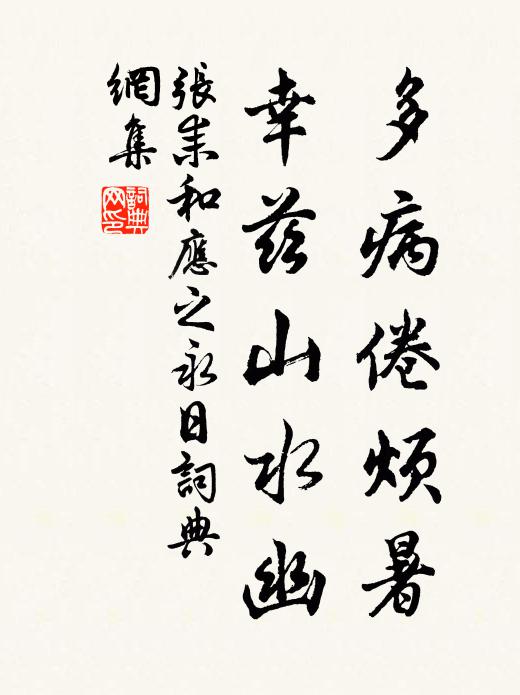 多病倦煩暑
幸茲山水幽
張耒和應之永日詞典
網集
詞典
网印